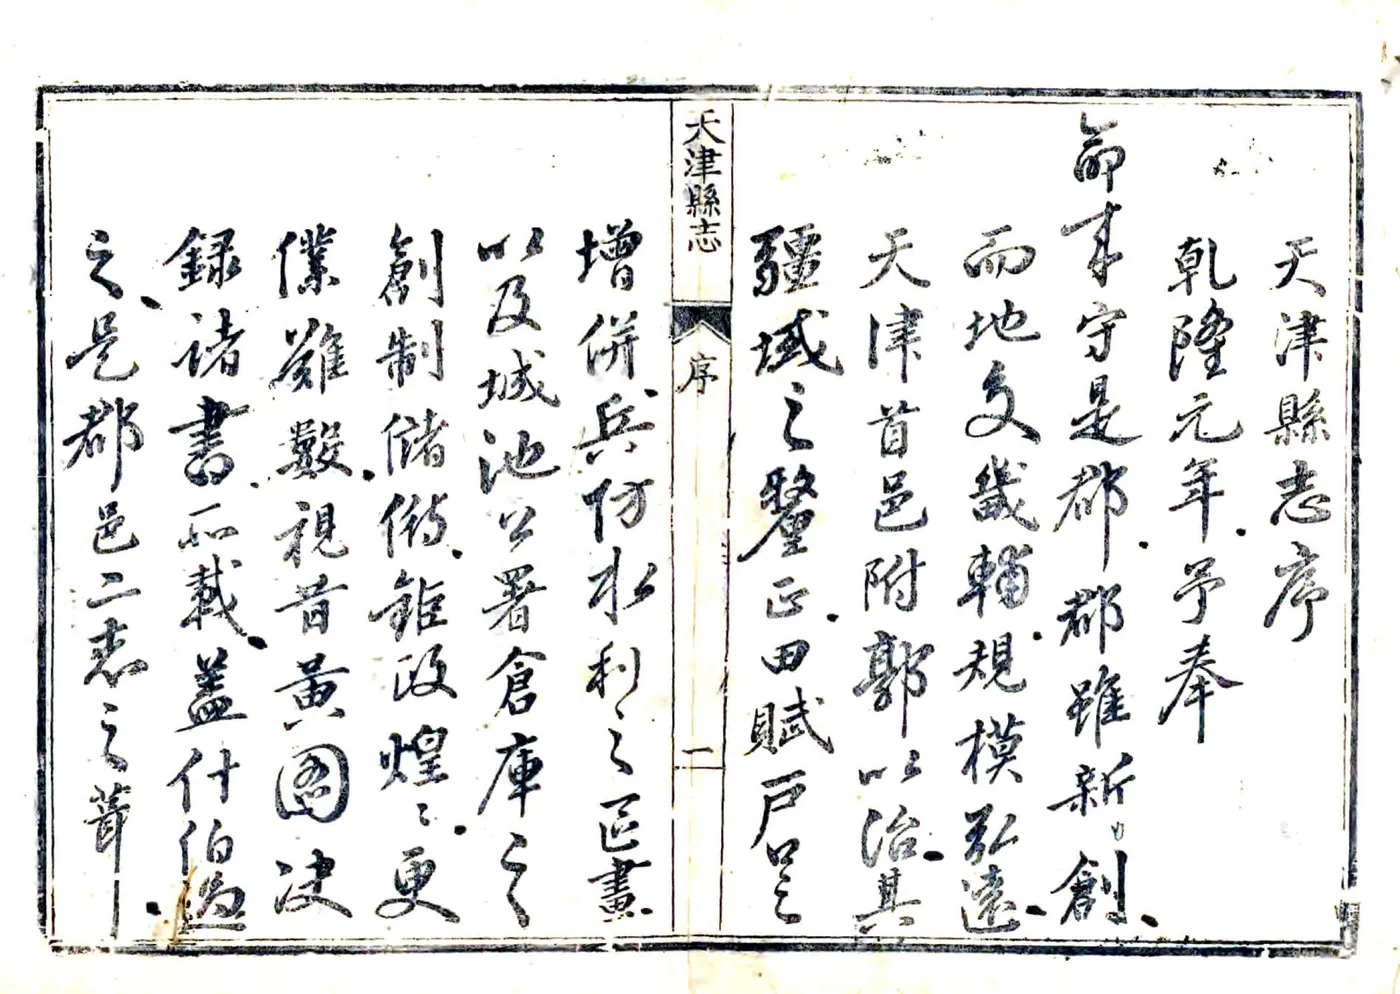 天津縣志序
乾隆元年予奉
命来守是郡郡雖新創
而地交畿輔規模弘遠
天津首邑附郭以治其
疆域之釐正田賦戶口之
天津縣志
序
一
增併兵防水利之區畫
以及城池公署倉庫之
創制儲偫政煌〻更
僕難數視昔黃圖决
録諸書所載蓋什伯過
之是郡邑二志之葺